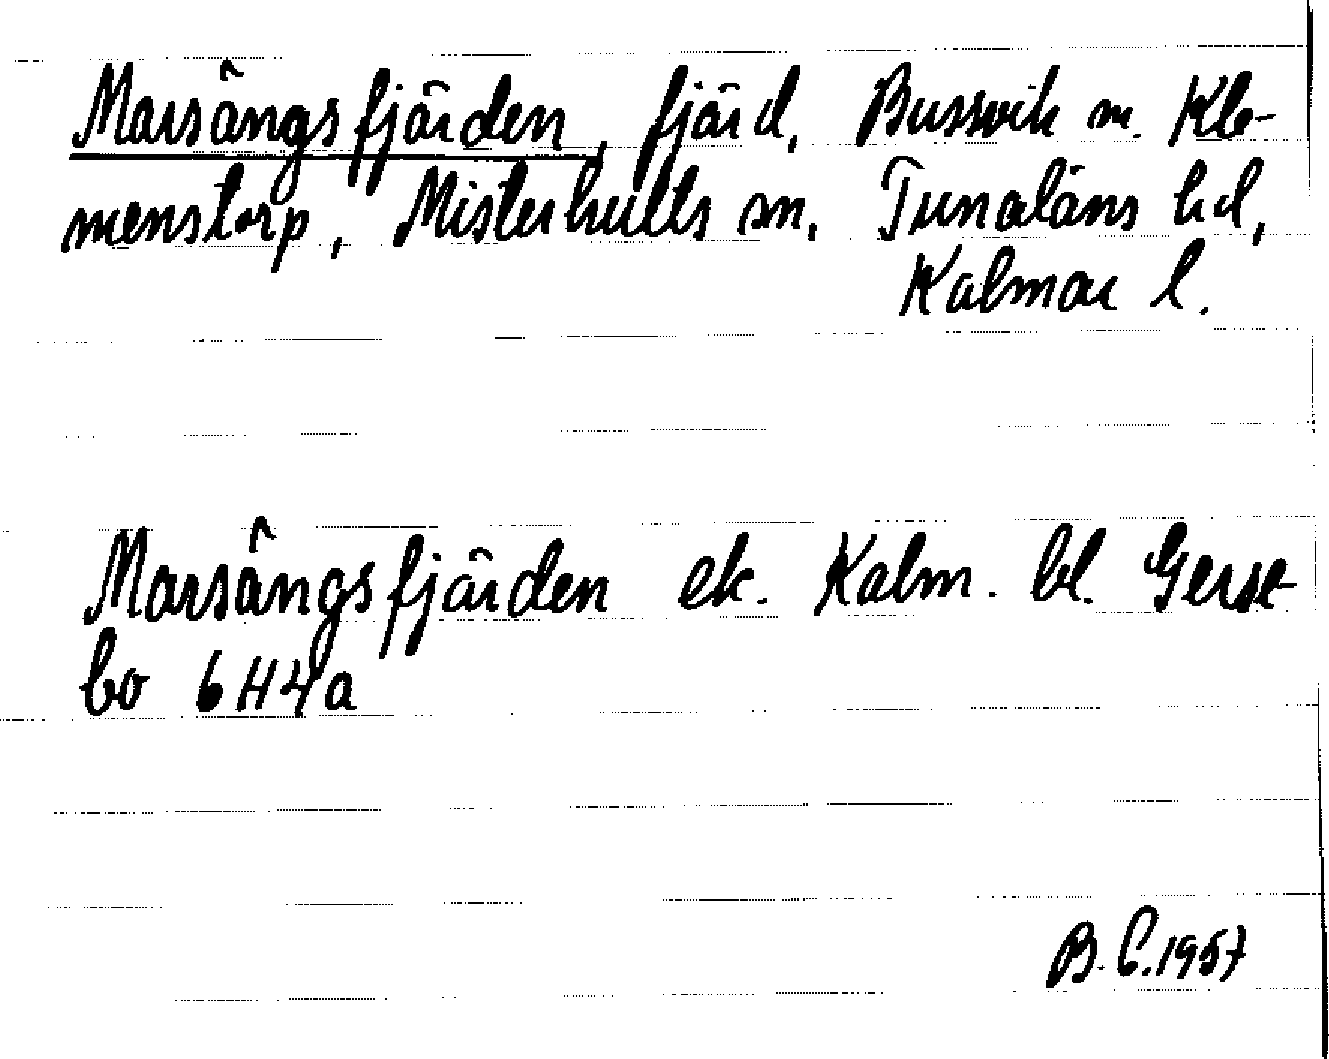 Marsängsfjärden, fjärd, Bussvik m. Kle-
menstorp, Misterhults sn, Tunaläns hd,
Kalmar l.
Marsängsfjärden ek. Kalm. bl. Gerse-
bo 6H4a
B.C.1957